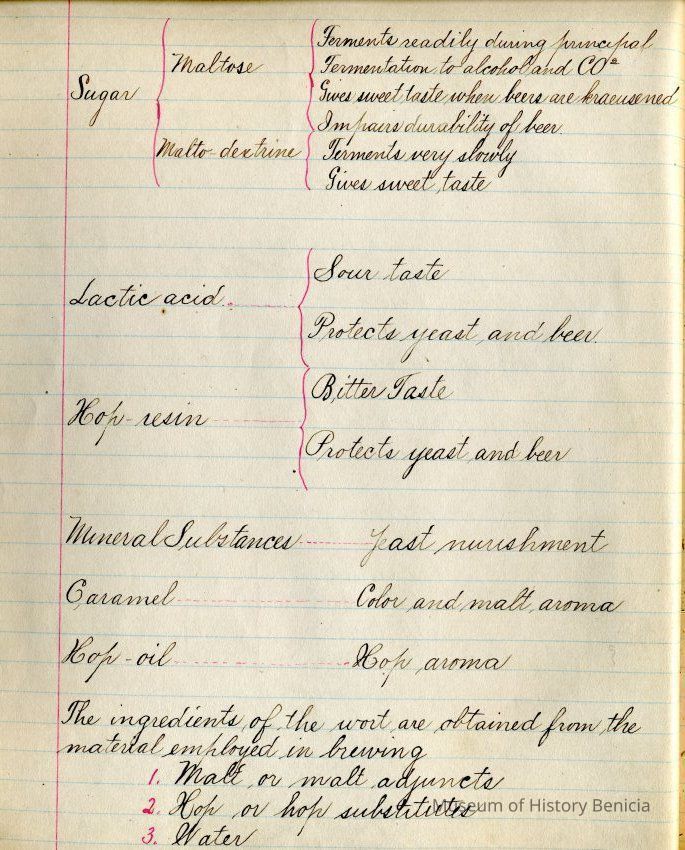 Ferments readily during principal
Maltose Fermentation to alcohol and CO²
Sugar Gives sweet taste when beers are kraeusened
Impairs durability of beer.
Malto-dextrine Ferments very slowly
Gives sweet taste
Sour taste
Lactic acid
Protects yeast and beer.
Bitter Taste
Hop-resin
Protects yeast and beer
Mineral Substances yeast nurishment
Caramel Color and malt aroma
Hop-oil Hop aroma
The ingredients of the wort are obtained from the
material employed in brewing
1. Malt or malt adjuncts
2. Hop or hop substitutes
Museum of History Benicia
3. Water